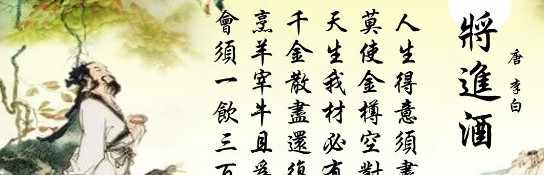 將進酒
唐 李白
人生得意須盡
莫使金樽空對
天生我材必有
千金散盡還復
烹羊宰牛且為
會須一飲三百